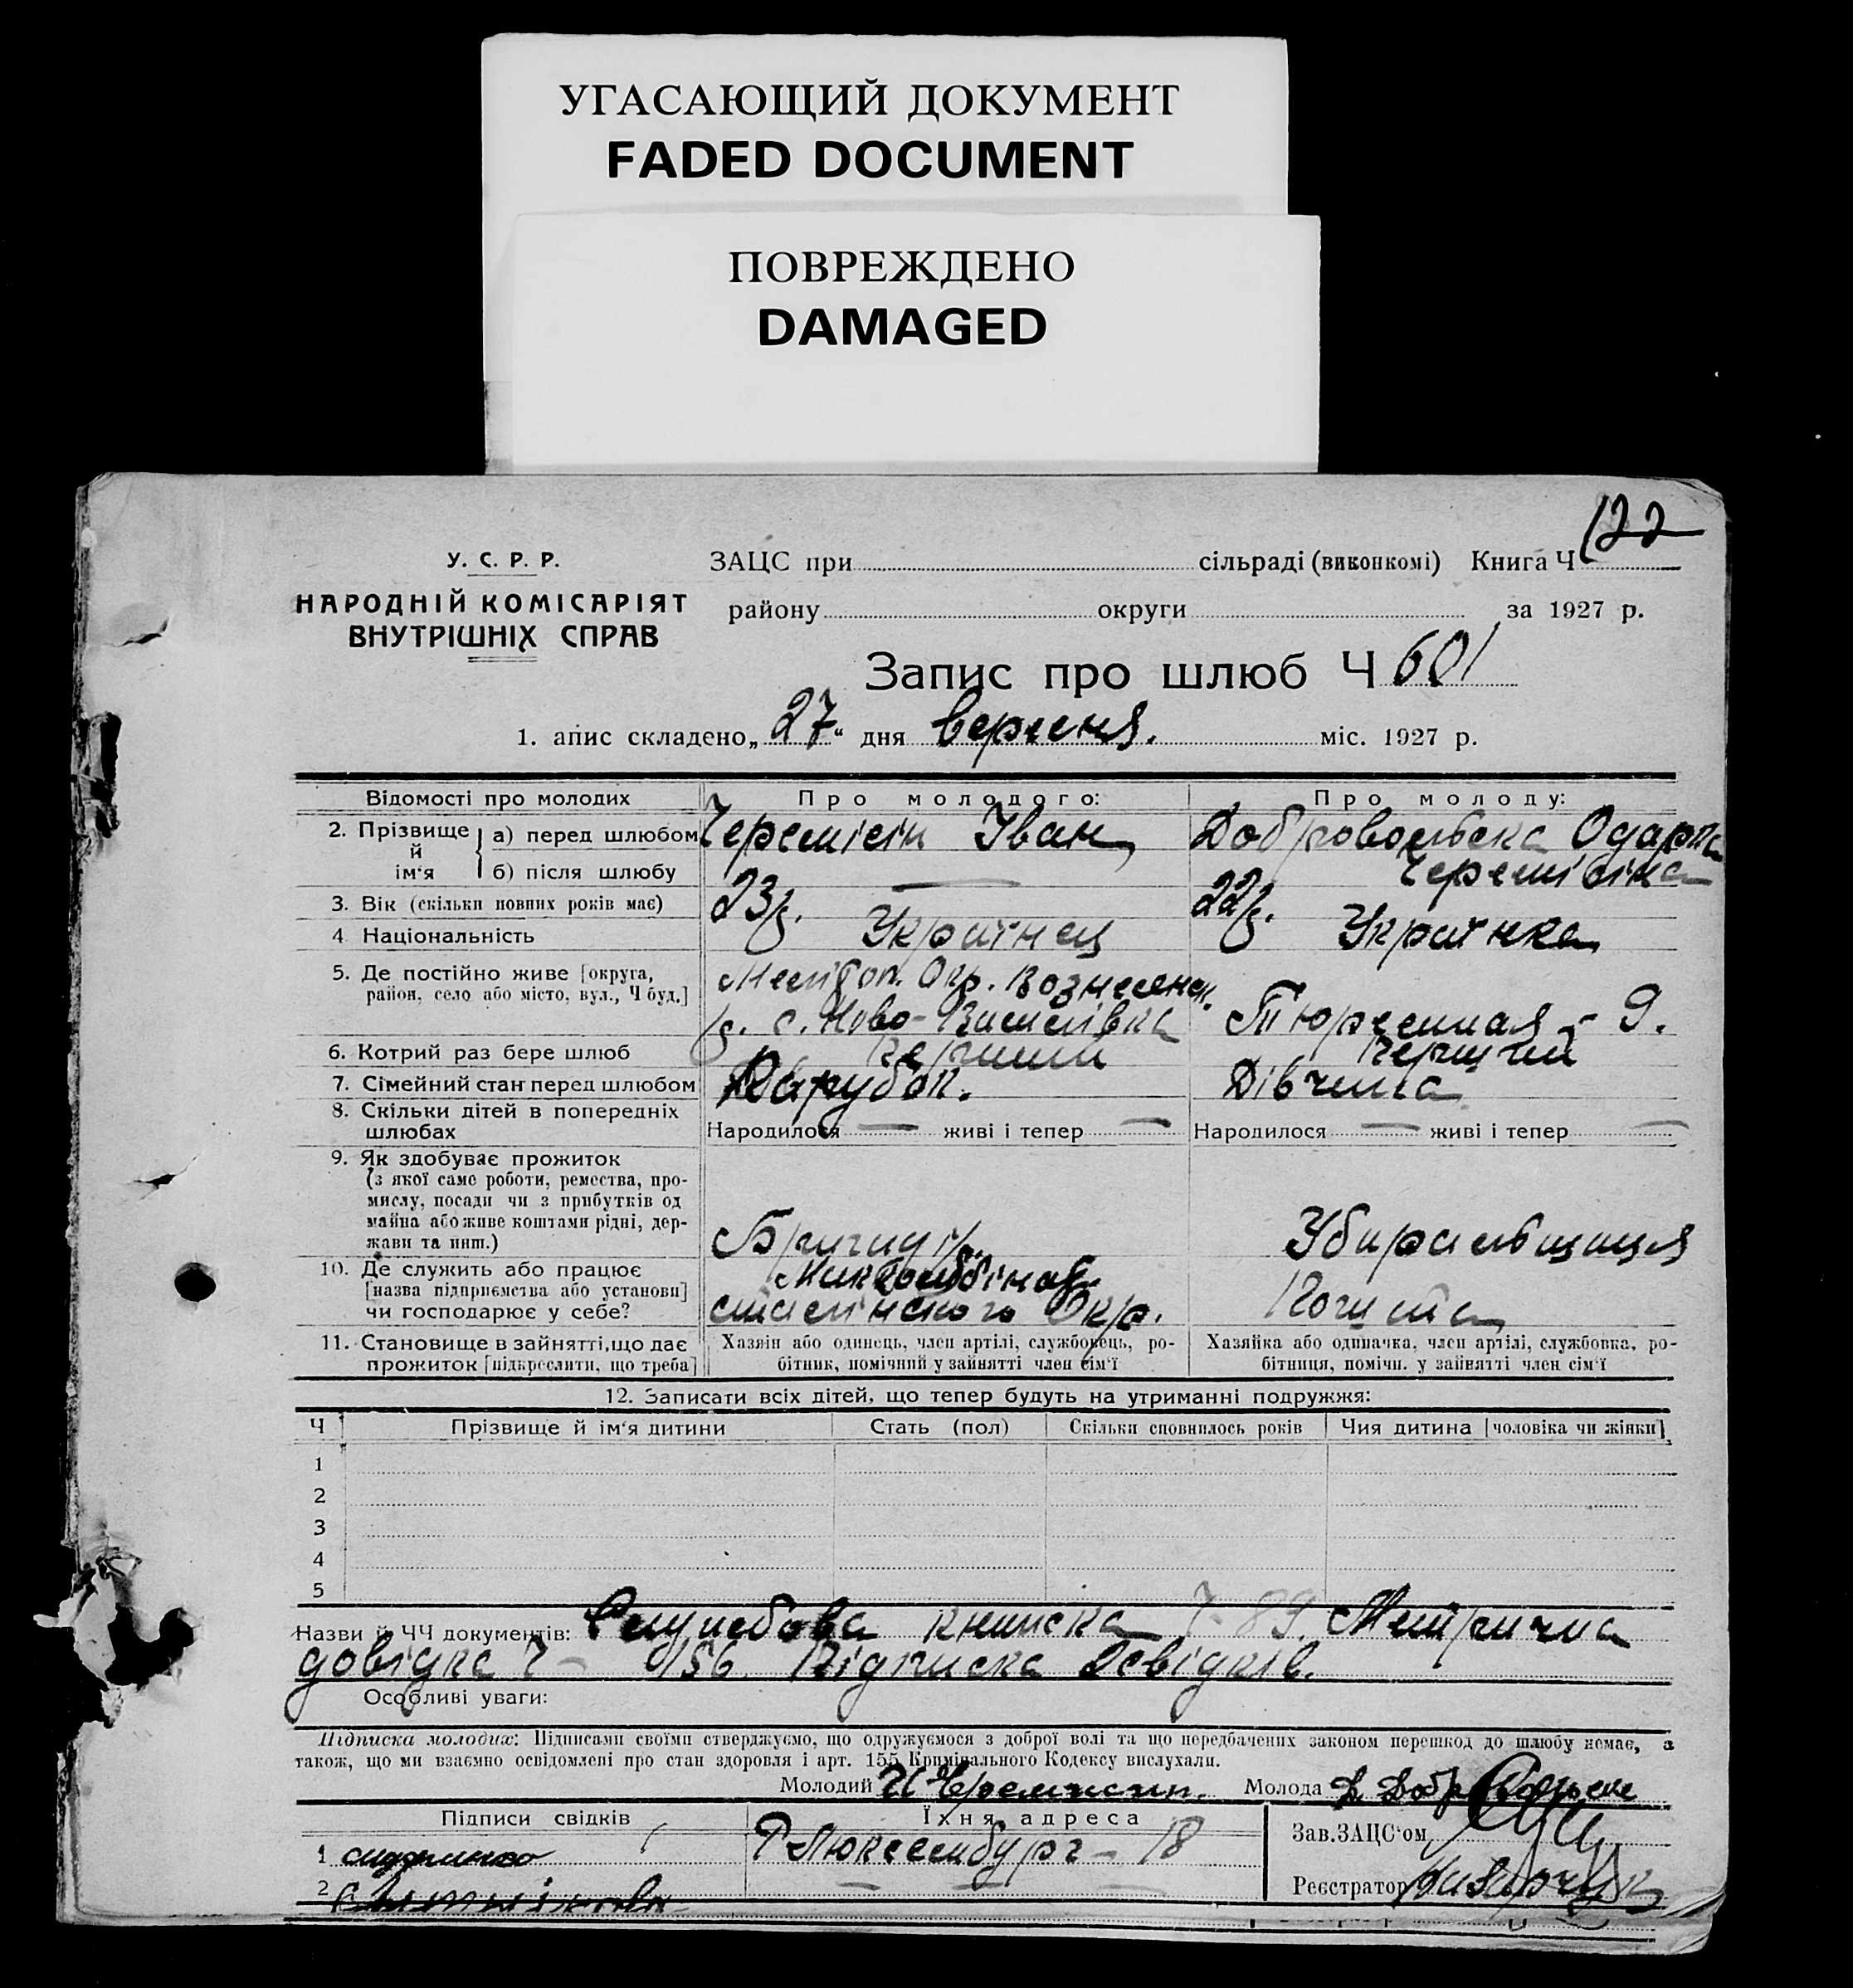 УГАСАЮЩИЙ ДОКУМЕНТ
FADED DOCUMENT
ПОВРЕЖДЕНО
DAMAGED
122
У. С. Р. Р.
НАРОДНІЙ КОМІСАРІЯТ
ВНУТРІШНІХ СПРАВ
ЗАЦС при сільраді (виконкомі) Книга Ч
району округи за 1927 р.
Запис про шлюб Ч 601
1. апис складено „27“ дня вересня. міс. 1927 р.
Відомості про молодих Про молодого: Про молоду:
2. Прізвище й ім'я а) перед шлюбом Черемісін Іван Добровольська Одарка
б) після шлюбу — Черемісіна
3. Вік (скільки повних років має) 23 р. 22 р.
4 Національність Українец Українка
5. Де постійно живе [округа, район, село або місто, вул., Ч буд.] Меліт оп. Окр. Вознесенськ. р. с. Ново-Василівка Тюремная - 9.
6. Котрий раз бере шлюб перший перший
7. Сімейний стан перед шлюбом Парубок. Дівчина
8. Скільки дітей в попередніх шлюбах Народилося — живі і тепер — Народилося — живі і тепер —
9. Як здобуває прожиток
(з якої саме роботи, ремества, про-
мислу, посади чи з прибутків од
майна або живе коштами рідні, дер-
жави та инш.) Бригадір Убиральщиця
10. Де служить або працює
[назва підприємства або установи]
чи господарює у себе? сталінского Окр. Пошта
11. Становище в зайнятті, що дає
прожиток [підкреслити, що треба]
Хазяїн або одинець, член артілі, службовець, ро-
бітник, помічний у зайнятті член сім'ї
Хазяйка або одиначка, член артілі, службовка, ро-
бітниця, помічн. у зайнятті член сім'ї
12. Записати всіх дітей, що тепер будуть на утриманні подружжя:
Ч Прізвище й ім'я дитини Стать (пол) Скільки сповнилось років Чия дитина [чоловіка чи жінки]
1
2
3
4
5
Назви й ЧЧ документів: Службова книжка 7-89. Метрична
довідка Ч - 156. Підписка 2 свідків.
Особливі уваги:
Підписка молодих: Підписами своїми стверджуємо, що одружуємося з доброї волі та що передбачених законом перешкод до шлюбу немає, а
також, що ми взаємно освідомлені про стан здоровля і арт. 155 Кримінального Кодексу вислухали.
Молодий И Черемисин. Молода Д. Добровольске
Підписи свідків Їхня адреса Зав. ЗАЦС'ом
1 Р Люксембург - 18
2 — — — Реєстратор